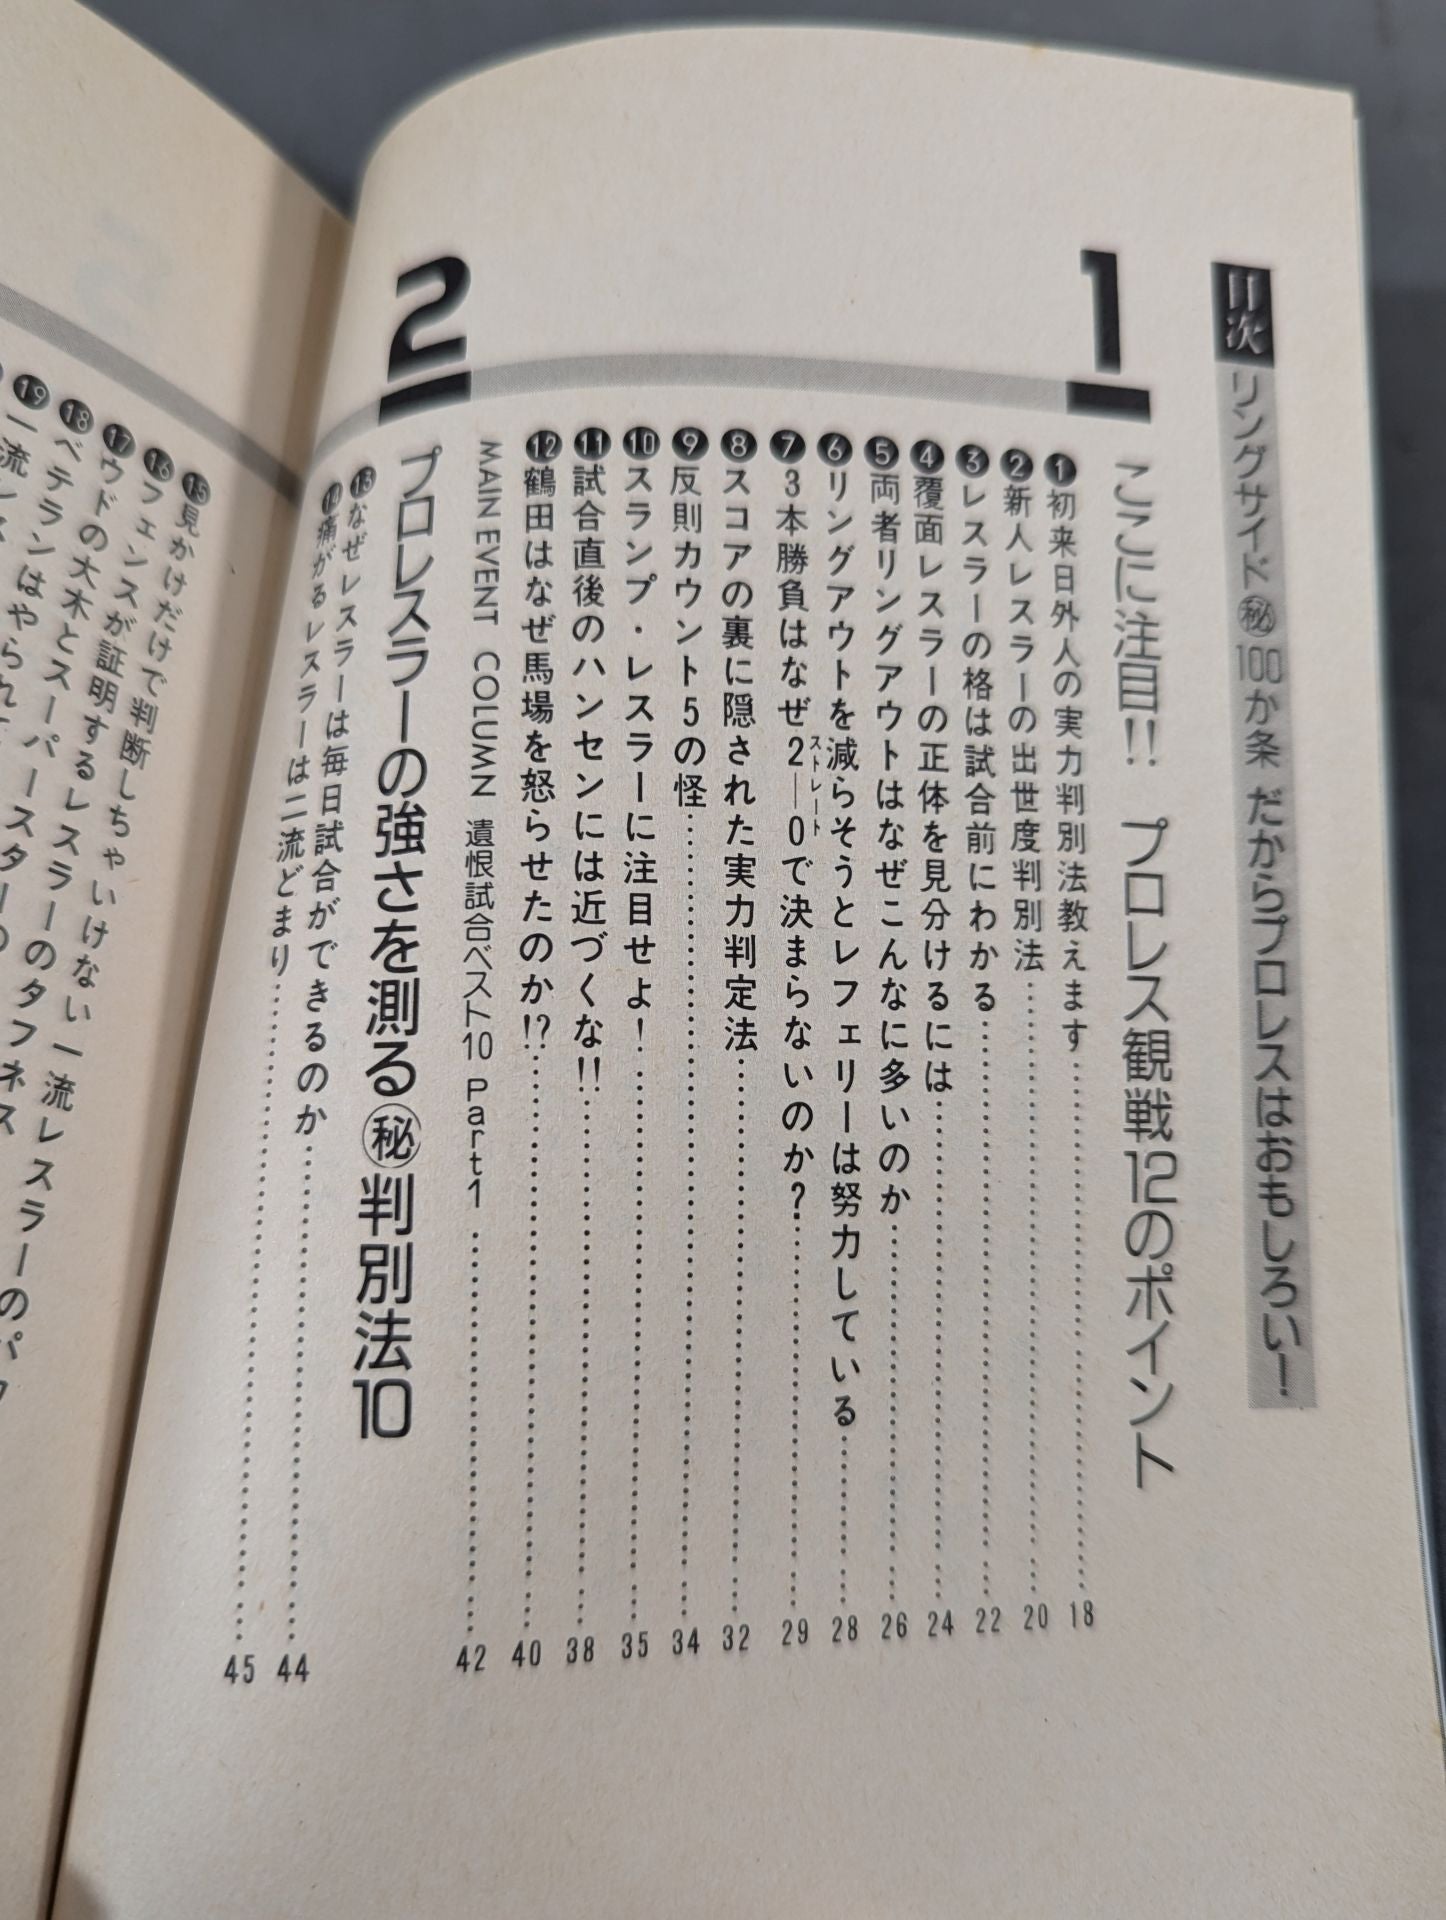 目次 リングサイド㊙100か条 だからプロレスはおもしろい!
1 ここに注目!! プロレス観戦12のポイント
❶初来日外人の実力判別法教えます……18
❷新人レスラーの出世度判別法……20
❸レスラーの格は試合前にわかる……22
❹覆面レスラーの正体を見分けるには……24
❺両者リングアウトはなぜこんなに多いのか……26
❻リングアウトを減らそうとレフェリーは努力している……28
❼3本勝負はなぜ2―0で決まらないのか?……29
ストレート
❽スコアの裏に隠された実力判定法……32
❾反則カウント5の怪……34
❿スランプ・レスラーに注目せよ!……35
⓫試合直後のハンセンには近づくな!!……38
⓬鶴田はなぜ馬場を怒らせたのか!?……40
MAIN EVENT COLUMN 遺恨試合ベスト10 Part1……42
2 プロレスラーの強さを測る㊙判別法10
⓭なぜレスラーは毎日試合ができるのか……44
⓮痛がるレスラーは二流どまり……45
⓯見かけだけで判断しちゃいけない一流レスラーのパワ
⓰フェンスが証明するレスラーのタフネス
⓱ウドの大木とスーパースターの
⓲ベテランはやられ
⓳一流レス